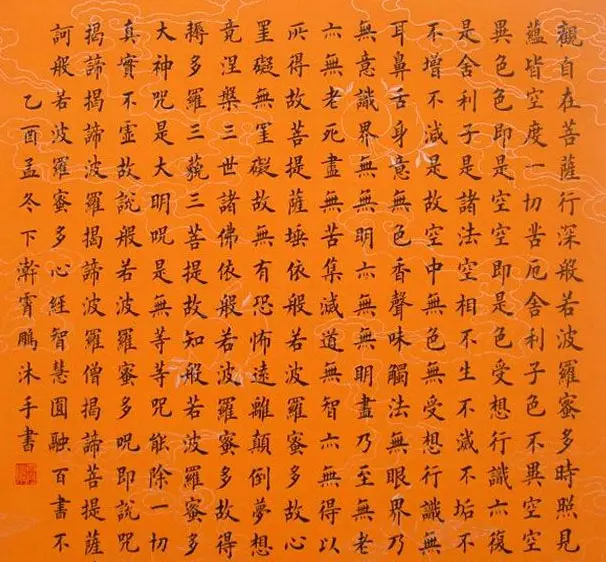 觀自在菩薩行深般若波羅蜜多時照見
蘊皆空度一切苦厄舍利子色不異空空
異色色即是空空即是色受想行識亦復
是舍利子是諸法空相不生不滅不垢不
不增不減是故空中無色無受想行識無
耳鼻舌身意無色香聲味觸法無眼界乃
無意識界無無明亦無無明盡乃至無老
亦無老死盡無苦集滅道無智亦無得以
所得故菩提薩埵依般若波羅蜜多故心
罣礙無罣礙故無有恐怖遠離顛倒夢想
竟涅槃三世諸佛依般若波羅蜜多故得
耨多羅三藐三菩提故知般若波羅蜜多
大神咒是大明咒是無等等咒能除一切
真實不虛故說般若波羅蜜多咒即說咒
揭諦揭諦波羅揭諦波羅僧揭諦菩提薩
訶般若波羅蜜多心經智慧圓融百書不
乙酉孟冬下澣霄鵬沐手書